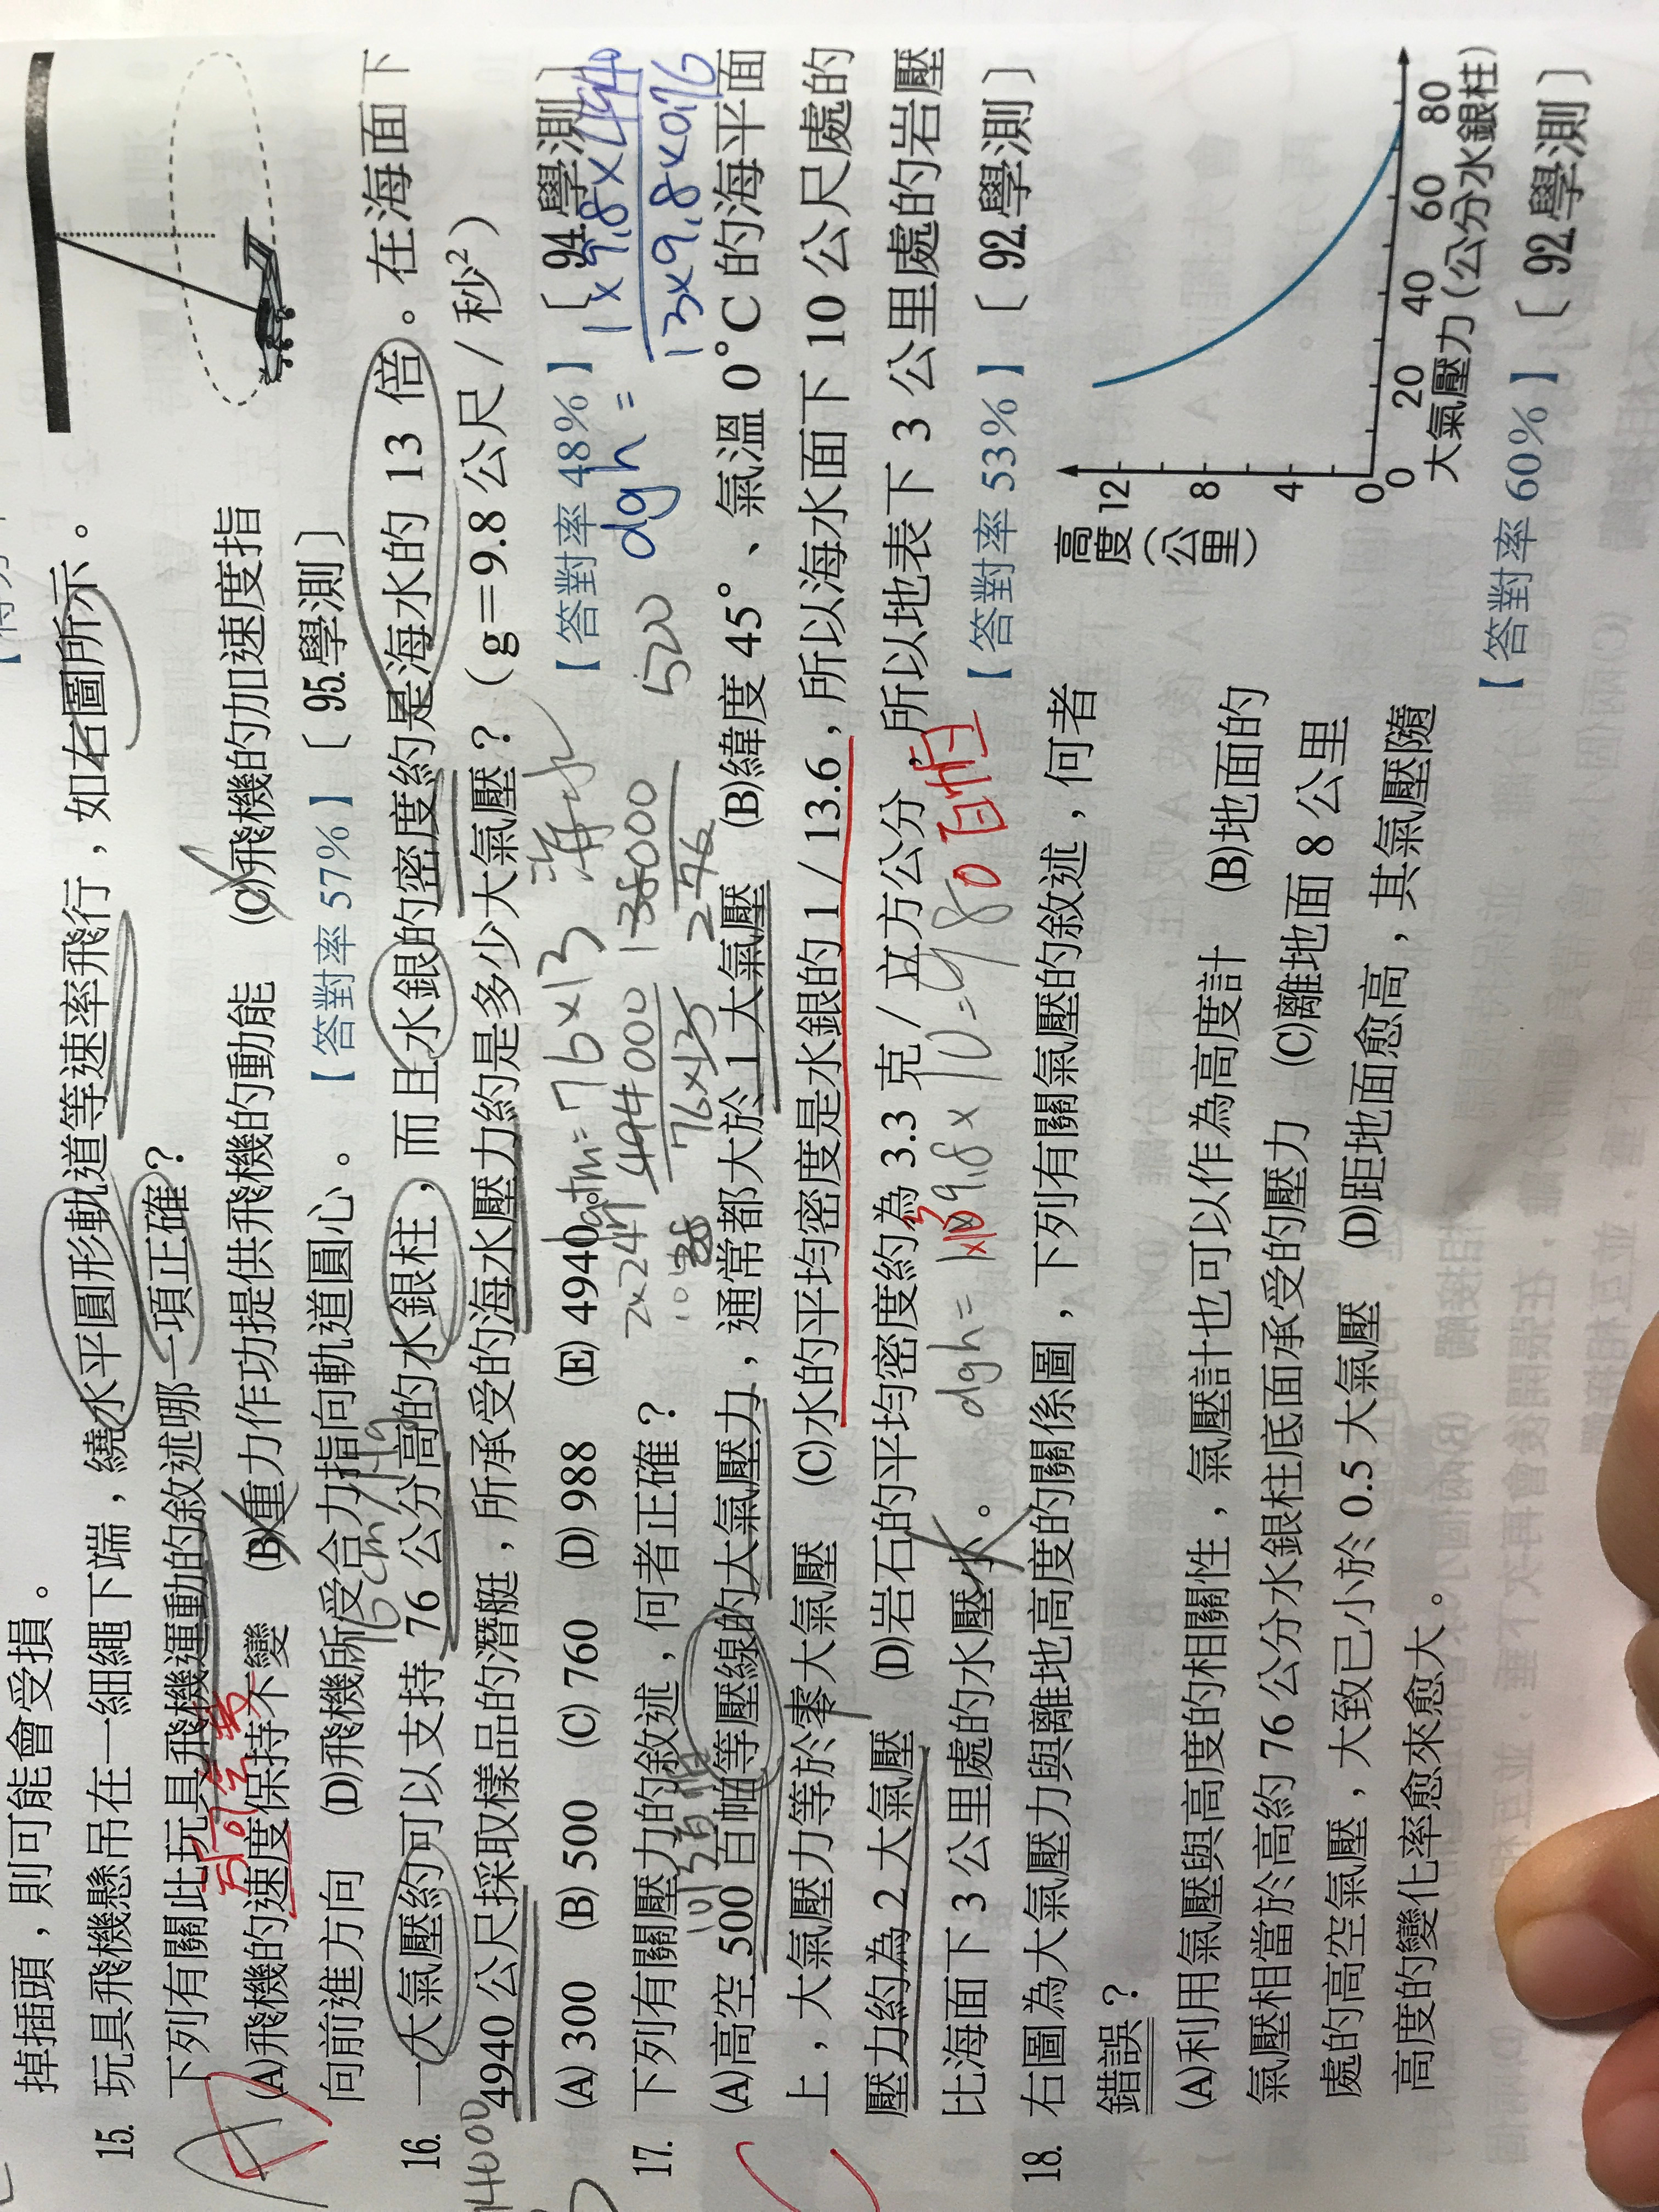 掉插頭，則可能會受損。
15. 玩具飛機懸吊在一細繩下端，繞水平圓形軌道等速率飛行，如右圖所示。
下列有關此玩具飛機運動的敘述哪一項正確？
(A)飛機的速度保持不變　(B)重力作功提供飛機的動能　(C)飛機的加速度指
向前進方向　(D)飛機所受合力指向軌道圓心。　【答對率 57%】〔95.學測〕
16. 一大氣壓約可以支持 76 公分高的水銀柱，而且水銀的密度約是海水的 13 倍。在海面下
4940 公尺採取樣品的潛艇，所承受的海水壓力約是多少大氣壓？（g＝9.8 公尺／秒²）
(A) 300　(B) 500　(C) 760　(D) 988　(E) 4940　【答對率 48%】〔94.學測〕
76×13
海水
dgh = 1×9.8×4940
13×9.8×0.76
494000
76×13
520
17. 下列有關壓力的敘述，何者正確？
(A)高空 500 百帕等壓線的大氣壓力，通常都大於 1 大氣壓　(B)緯度 45°、氣溫 0°C 的海平面
上，大氣壓力等於零大氣壓　(C)水的平均密度是水銀的 1 / 13.6，所以海水面下 10 公尺處的
壓力約為 2 大氣壓　(D)岩石的平均密度約為 3.3 克／立方公分，所以地表下 3 公里處的岩壓
比海面下 3 公里處的水壓小。　【答對率 53%】〔92.學測〕
18. 右圖為大氣壓力與離地高度的關係圖，下列有關氣壓的敘述，何者
錯誤？
(A)利用氣壓與高度的相關性，氣壓計也可以作為高度計　(B)地面的
氣壓相當於高約 76 公分水銀柱底面承受的壓力　(C)離地面 8 公里
處的高空氣壓，大致已小於 0.5 大氣壓　(D)距地面愈高，其氣壓隨
高度的變化率愈來愈大。　【答對率 60%】〔92.學測〕
高度（公里）
12
8
4
0
0 20 40 60 80
大氣壓力（公分水銀柱）